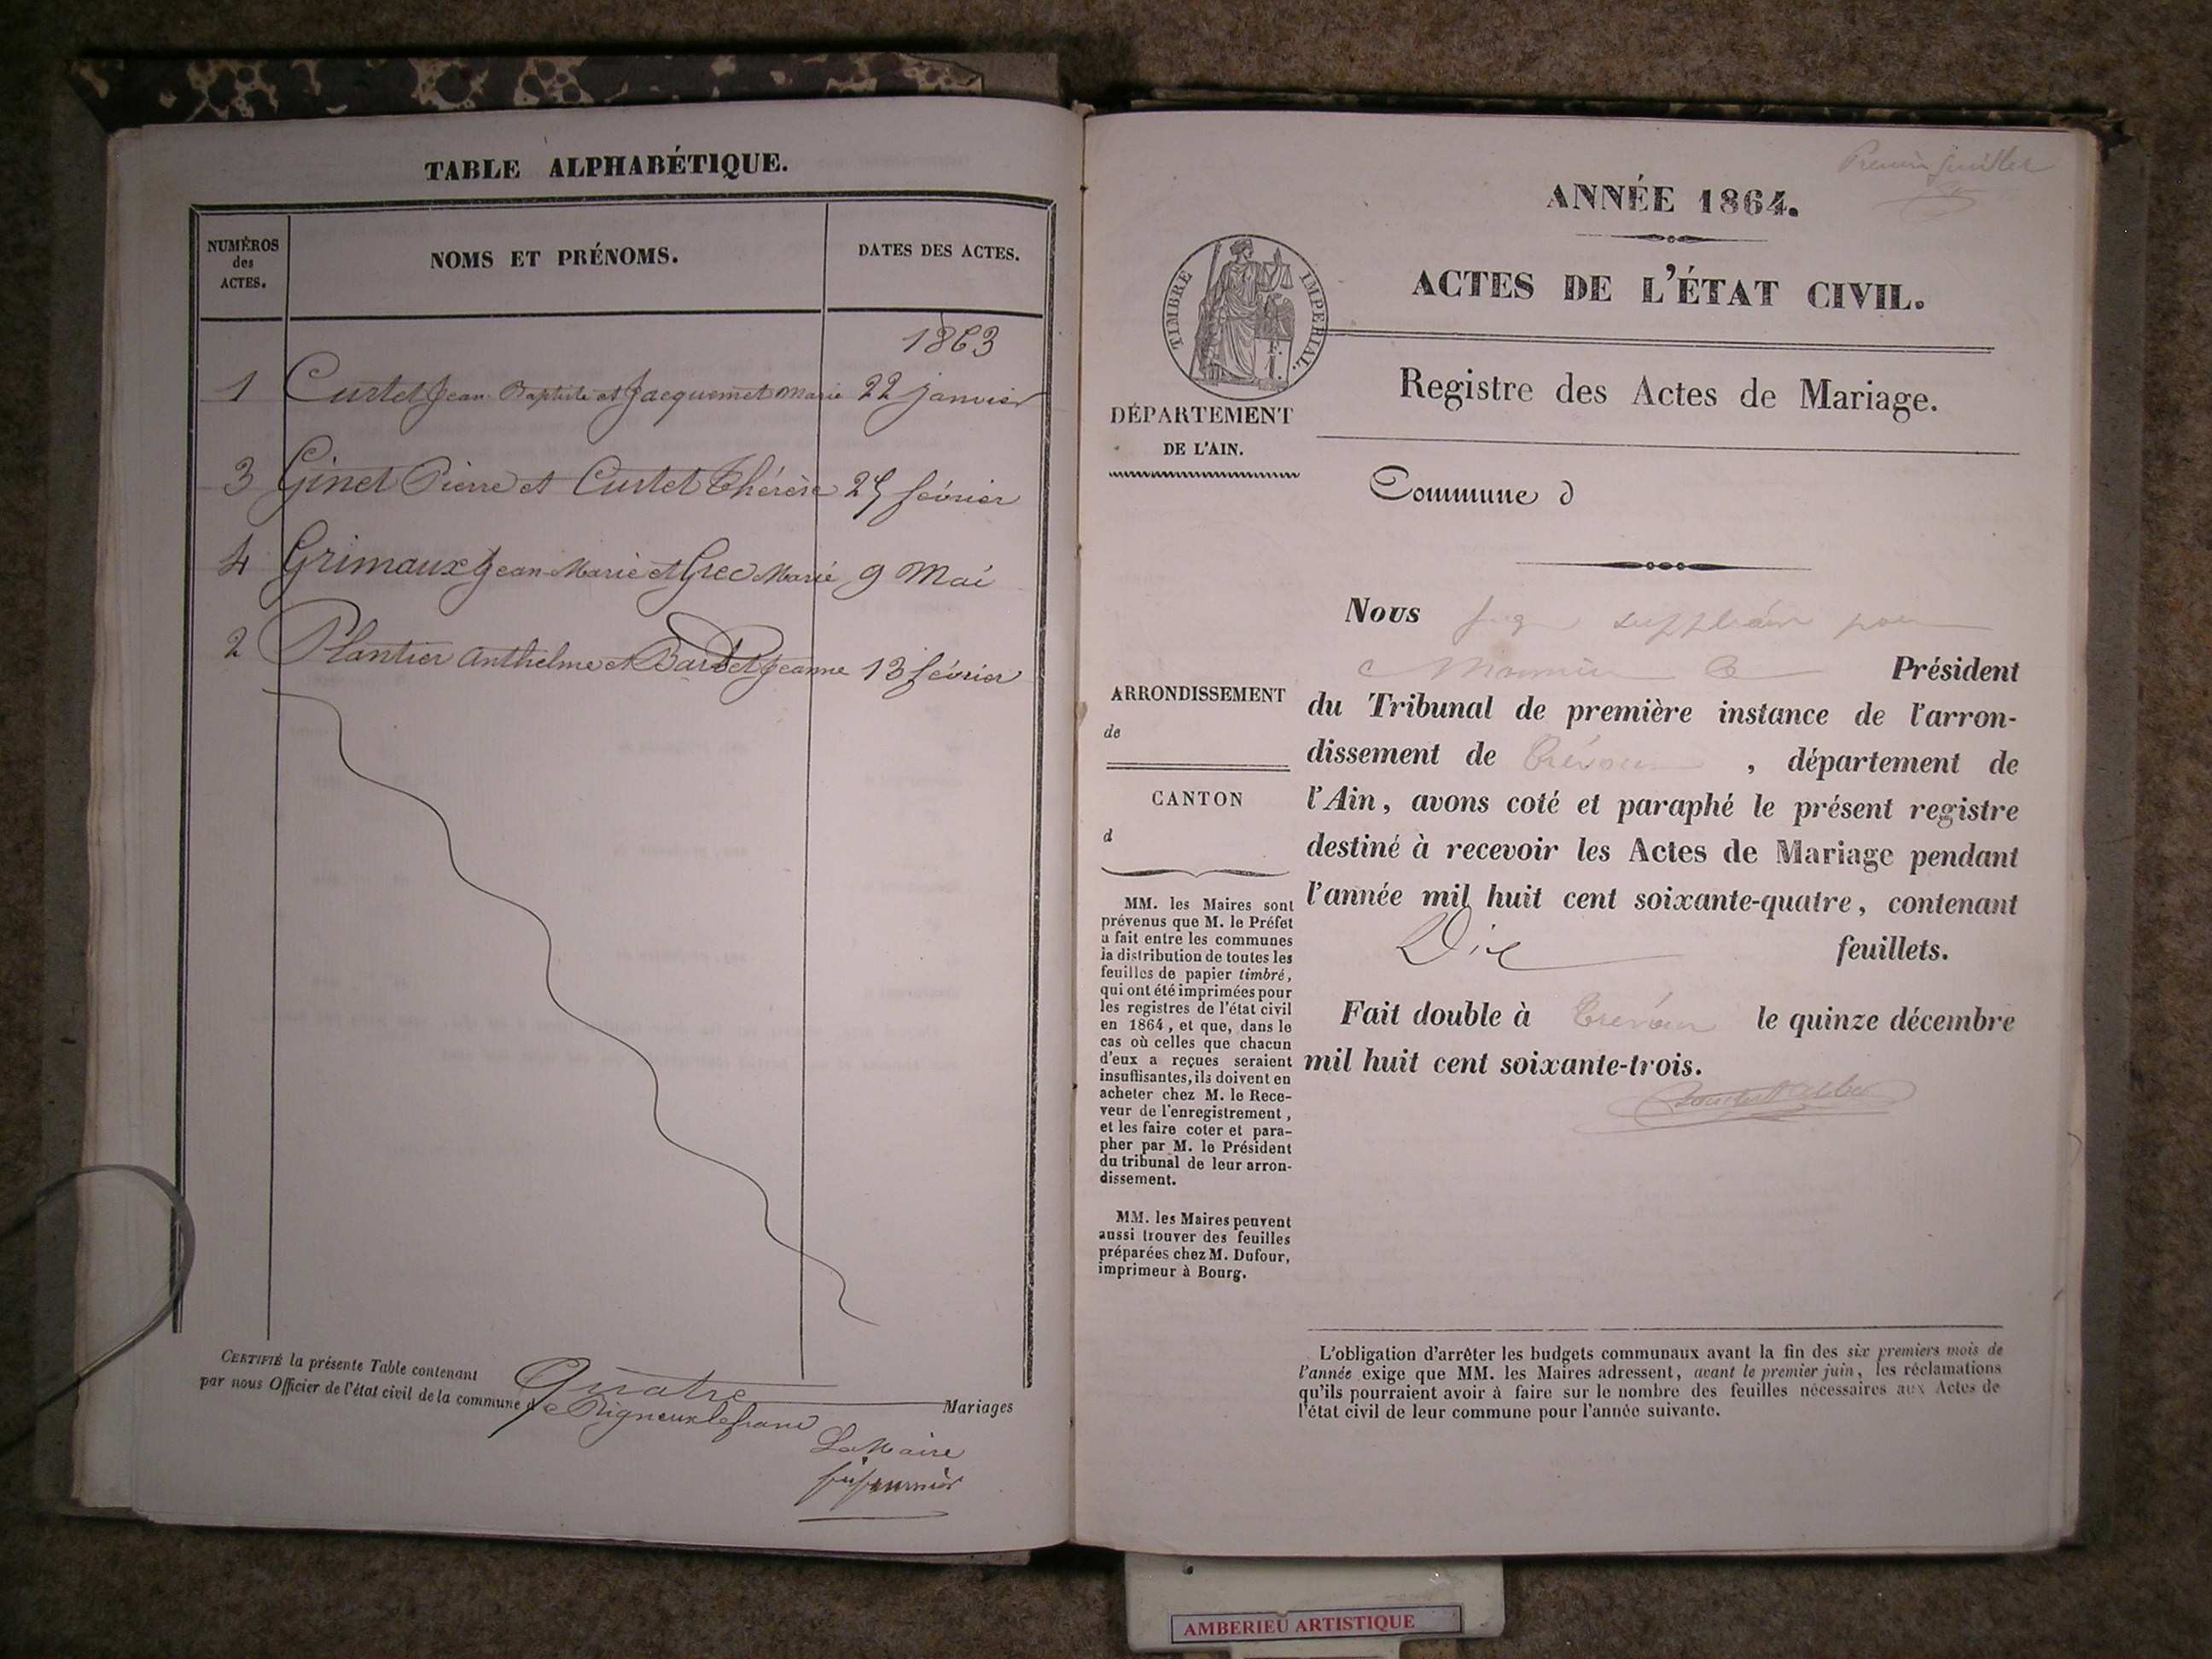 TABLE ALPHABÉTIQUE.
NUMÉROS
des
ACTES.
NOMS ET PRÉNOMS.
DATES DES ACTES.
1863
1 Curtet Jean-Baptiste et Jacquemet Marie 22 janvier
3 Ginet Pierre et Curtet Thérèse février
4 Grimaux Jean-Marie et Grec Marie 9 Mai
2 Plantier Anthelme et Barbet Jeanne 13 février
CERTIFIÉ la présente Table contenant Quatre Mariages
par nous Officier de l'état civil de la commune de Rigneux le franc
Le Maire
Premier feuillet
ANNÉE 1864.
ACTES DE L'ÉTAT CIVIL.
TIMBRE IMPÉRIAL.
Registre des Actes de Mariage.
DÉPARTEMENT
DE L'AIN.
Commune d
ARRONDISSEMENT
de
CANTON
d
MM. les Maires sont
prévenus que M. le Préfet
a fait entre les communes
la distribution de toutes les
feuilles de papier timbré,
qui ont été imprimées pour
les registres de l'état civil
en 1864, et que, dans le
cas où celles que chacun
d'eux a reçues seraient
insuffisantes, ils doivent en
acheter chez M. le Rece-
veur de l'enregistrement,
et les faire coter et para-
pher par M. le Président
du tribunal de leur arron-
dissement.
MM. les Maires peuvent
aussi trouver des feuilles
préparées chez M. Dufour,
imprimeur à Bourg.
Nous juge suppléant pour
Président
du Tribunal de première instance de l'arron-
dissement de Trévoux, département de
l'Ain, avons coté et paraphé le présent registre
destiné à recevoir les Actes de Mariage pendant
l'année mil huit cent soixante-quatre, contenant
Dix feuillets.
Fait double à Trévoux le quinze décembre
mil huit cent soixante-trois.
L'obligation d'arrêter les budgets communaux avant la fin des six premiers mois de
l'année exige que MM. les Maires adressent, avant le premier juin, les réclamations
qu'ils pourraient avoir à faire sur le nombre des feuilles nécessaires aux Actes de
l'état civil de leur commune pour l'année suivante.
AMBERIEU ARTISTIQUE